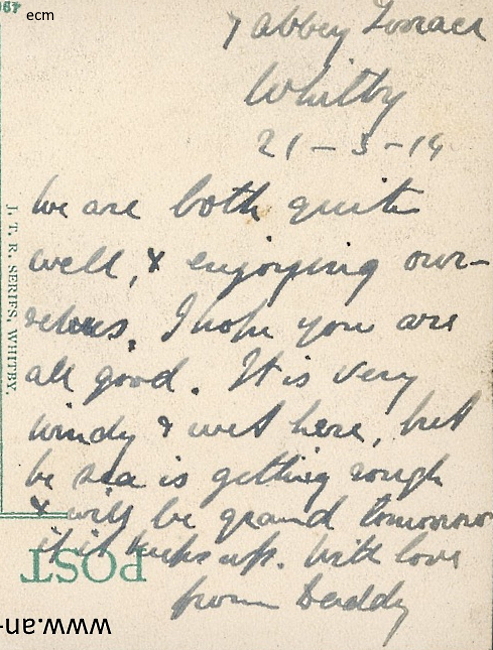 67 ecm
7 Abbey Terrace
Whitby
21-5-14
We are both quite
well, & enjoying our-
selves. I hope you are
all good. It is very
windy & wet here, but
sea is getting rough
& will be grand tomorrow
if it keeps up. With love
from Daddy
J. T. R. SERIES, WHITBY.
POST
www.an-